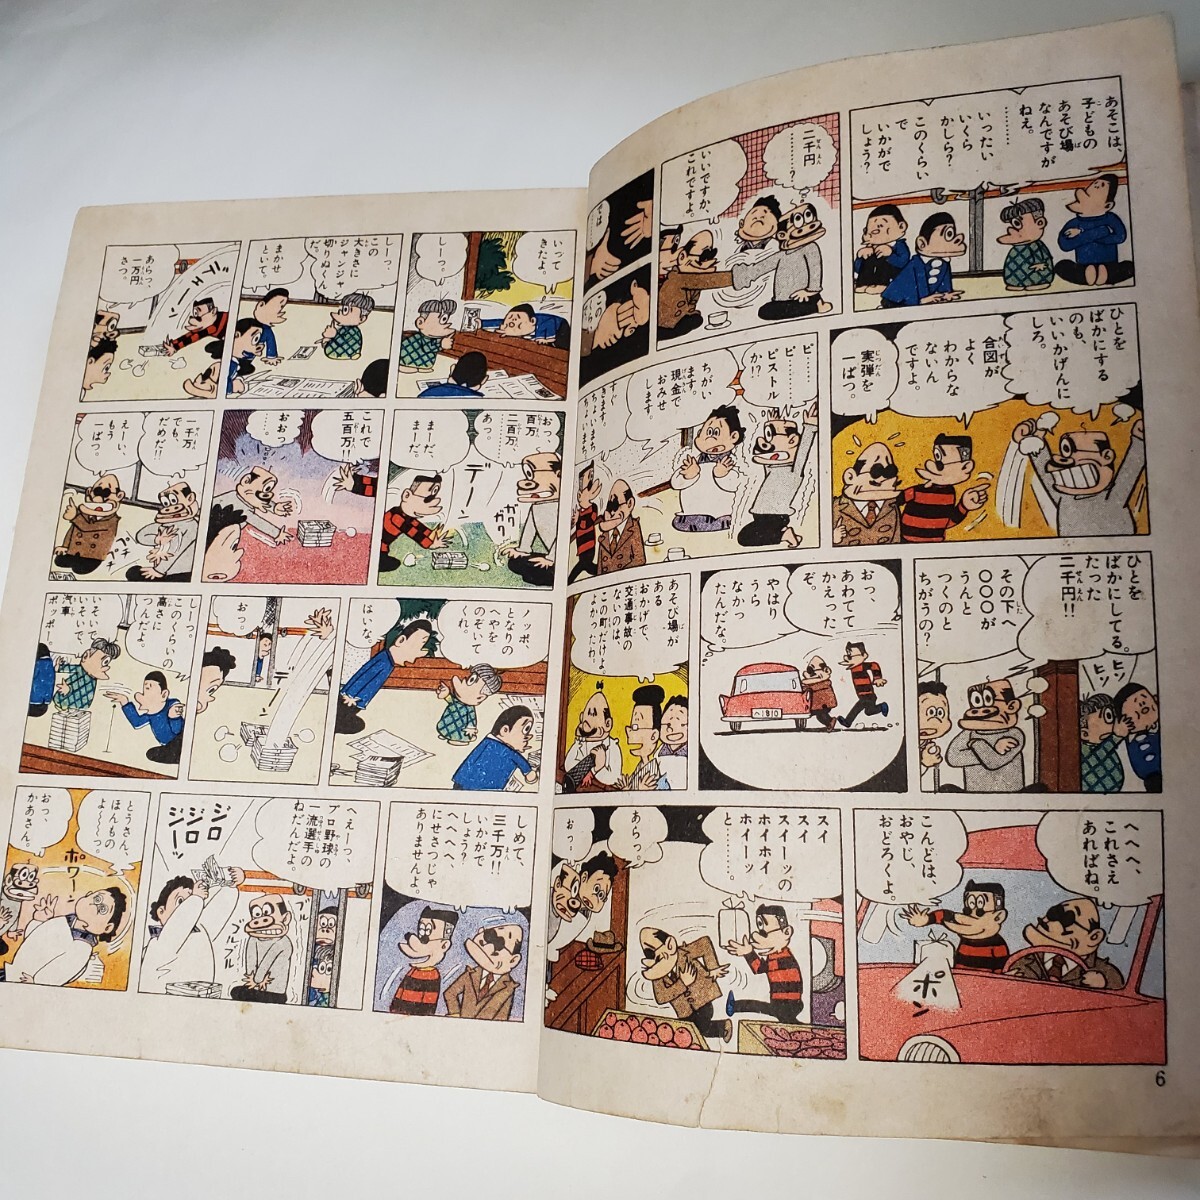 あそこは、
子どもの
あそび場
なんですが
ねえ。
………
いったい
いくら
かしら？
このくらい
で
いかがで
しょう？
二千円
………？
いいですか、
これですよ。
ひとを
ばかにする
のも、
いいかげんに
しろ。
合図が
よく
わからな
ないん
ですよ。
実弾を
一ぱつ。
ピ……
ピストル
か!?
ちがい
ます。
現金で
おみせ
します
ひとを
ばかにしてる。
たった
二千円!!
その下へ
〇〇〇が
うんと
つくのと
ちがうの？
ヒソ
ヒソ
おっ、
あわてて
かえった
ぞ。
やはり
うら
なかっ
たんだな。
へ1810
あそび場が
ある
おかげで、
交通事故の
ないのは、
この町だけよ。
よかったわ。
ヘヘヘ、
これさえ
あればね。
こんどは、
おやじ、
おどろくよ。
ポン
スイ
スイ
スイーッの
ホイホイ
ホイーッ
と……。
あらっ。
おっ。
6
いって
きたよ。
しーっ。
しーっ、
この
大きさに
ジャンジャン
切りぬくん
だ。
まかせ
といて。
デェーン
あらっ、
一万円
さつ。
おっ、
百万、
二百万、
あっ。
まーだ、
まーだ。
デーン
ガク
ガク
これで
五百万!!
おおっ
…。
一千万
でも、
だめだ!!
えーい、
もう
一ぱつ。
ペチ
ペチ
ノッポ、
となりの
へやを
のぞいて
くれ。
はいな。
おっ。
デーン
しーっ。
このくらいの
高さに
つんだよ。
いそいで
いそいで、
汽車
ポッポー。
しめて、
三千万!!
いかがで
しょう？
ヘヘヘヘ、
にせさつじゃ
ありませんよ。
へえーっ、
プロ野球の
一流選手の
ねだんだよ。
ジロ
ジロ
ジーッ
ブルブル
ブルブル
とうさん、
ほんもの
よ〜〜っ。
おっ、
かあさん。
ポワーン